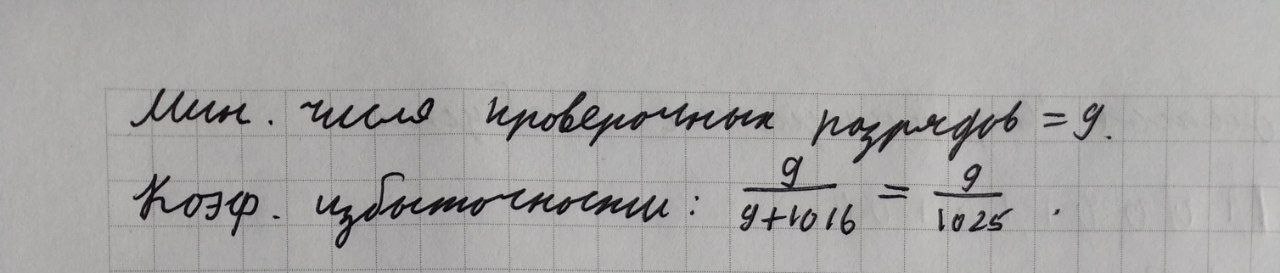 Мин. числа проверочных разрядов = 9.
Коэф. избыточности: 9/(9+1016) = 9/1025.